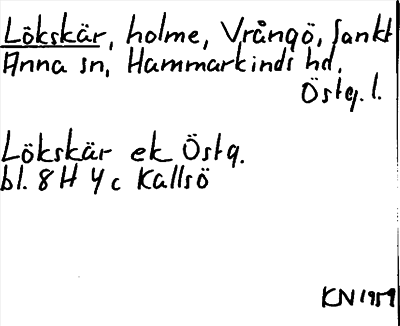 Lökskär, holme, Vrångö, Sankt
Anna sn, Hammarkinds hd,
Östg. l.
Lökskär ek Östg.
bl. 8 H 4 c Kallsö
KN 1959